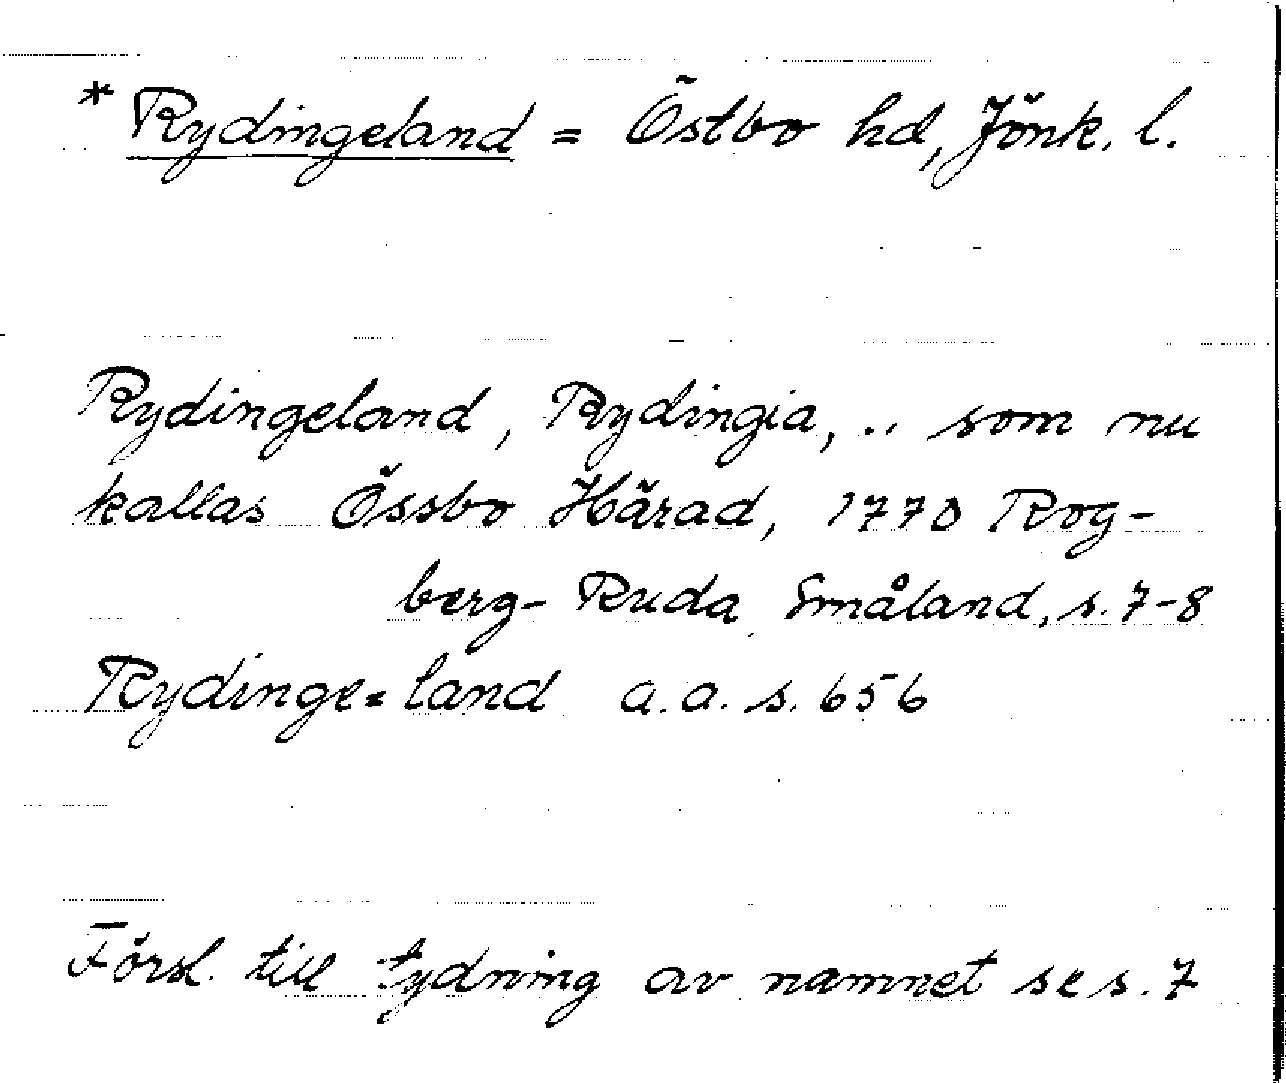 * Rydingeland = Östbo hd, Jönk. l.
Rydingeland, Rydingia, .. som nu
kallas Össbo Härad, 1770 Rog-
berg-Ruda Småland, s. 7-8
Rydinge=land a.a. s. 656
Försl. till tydning av namnet se s. 7